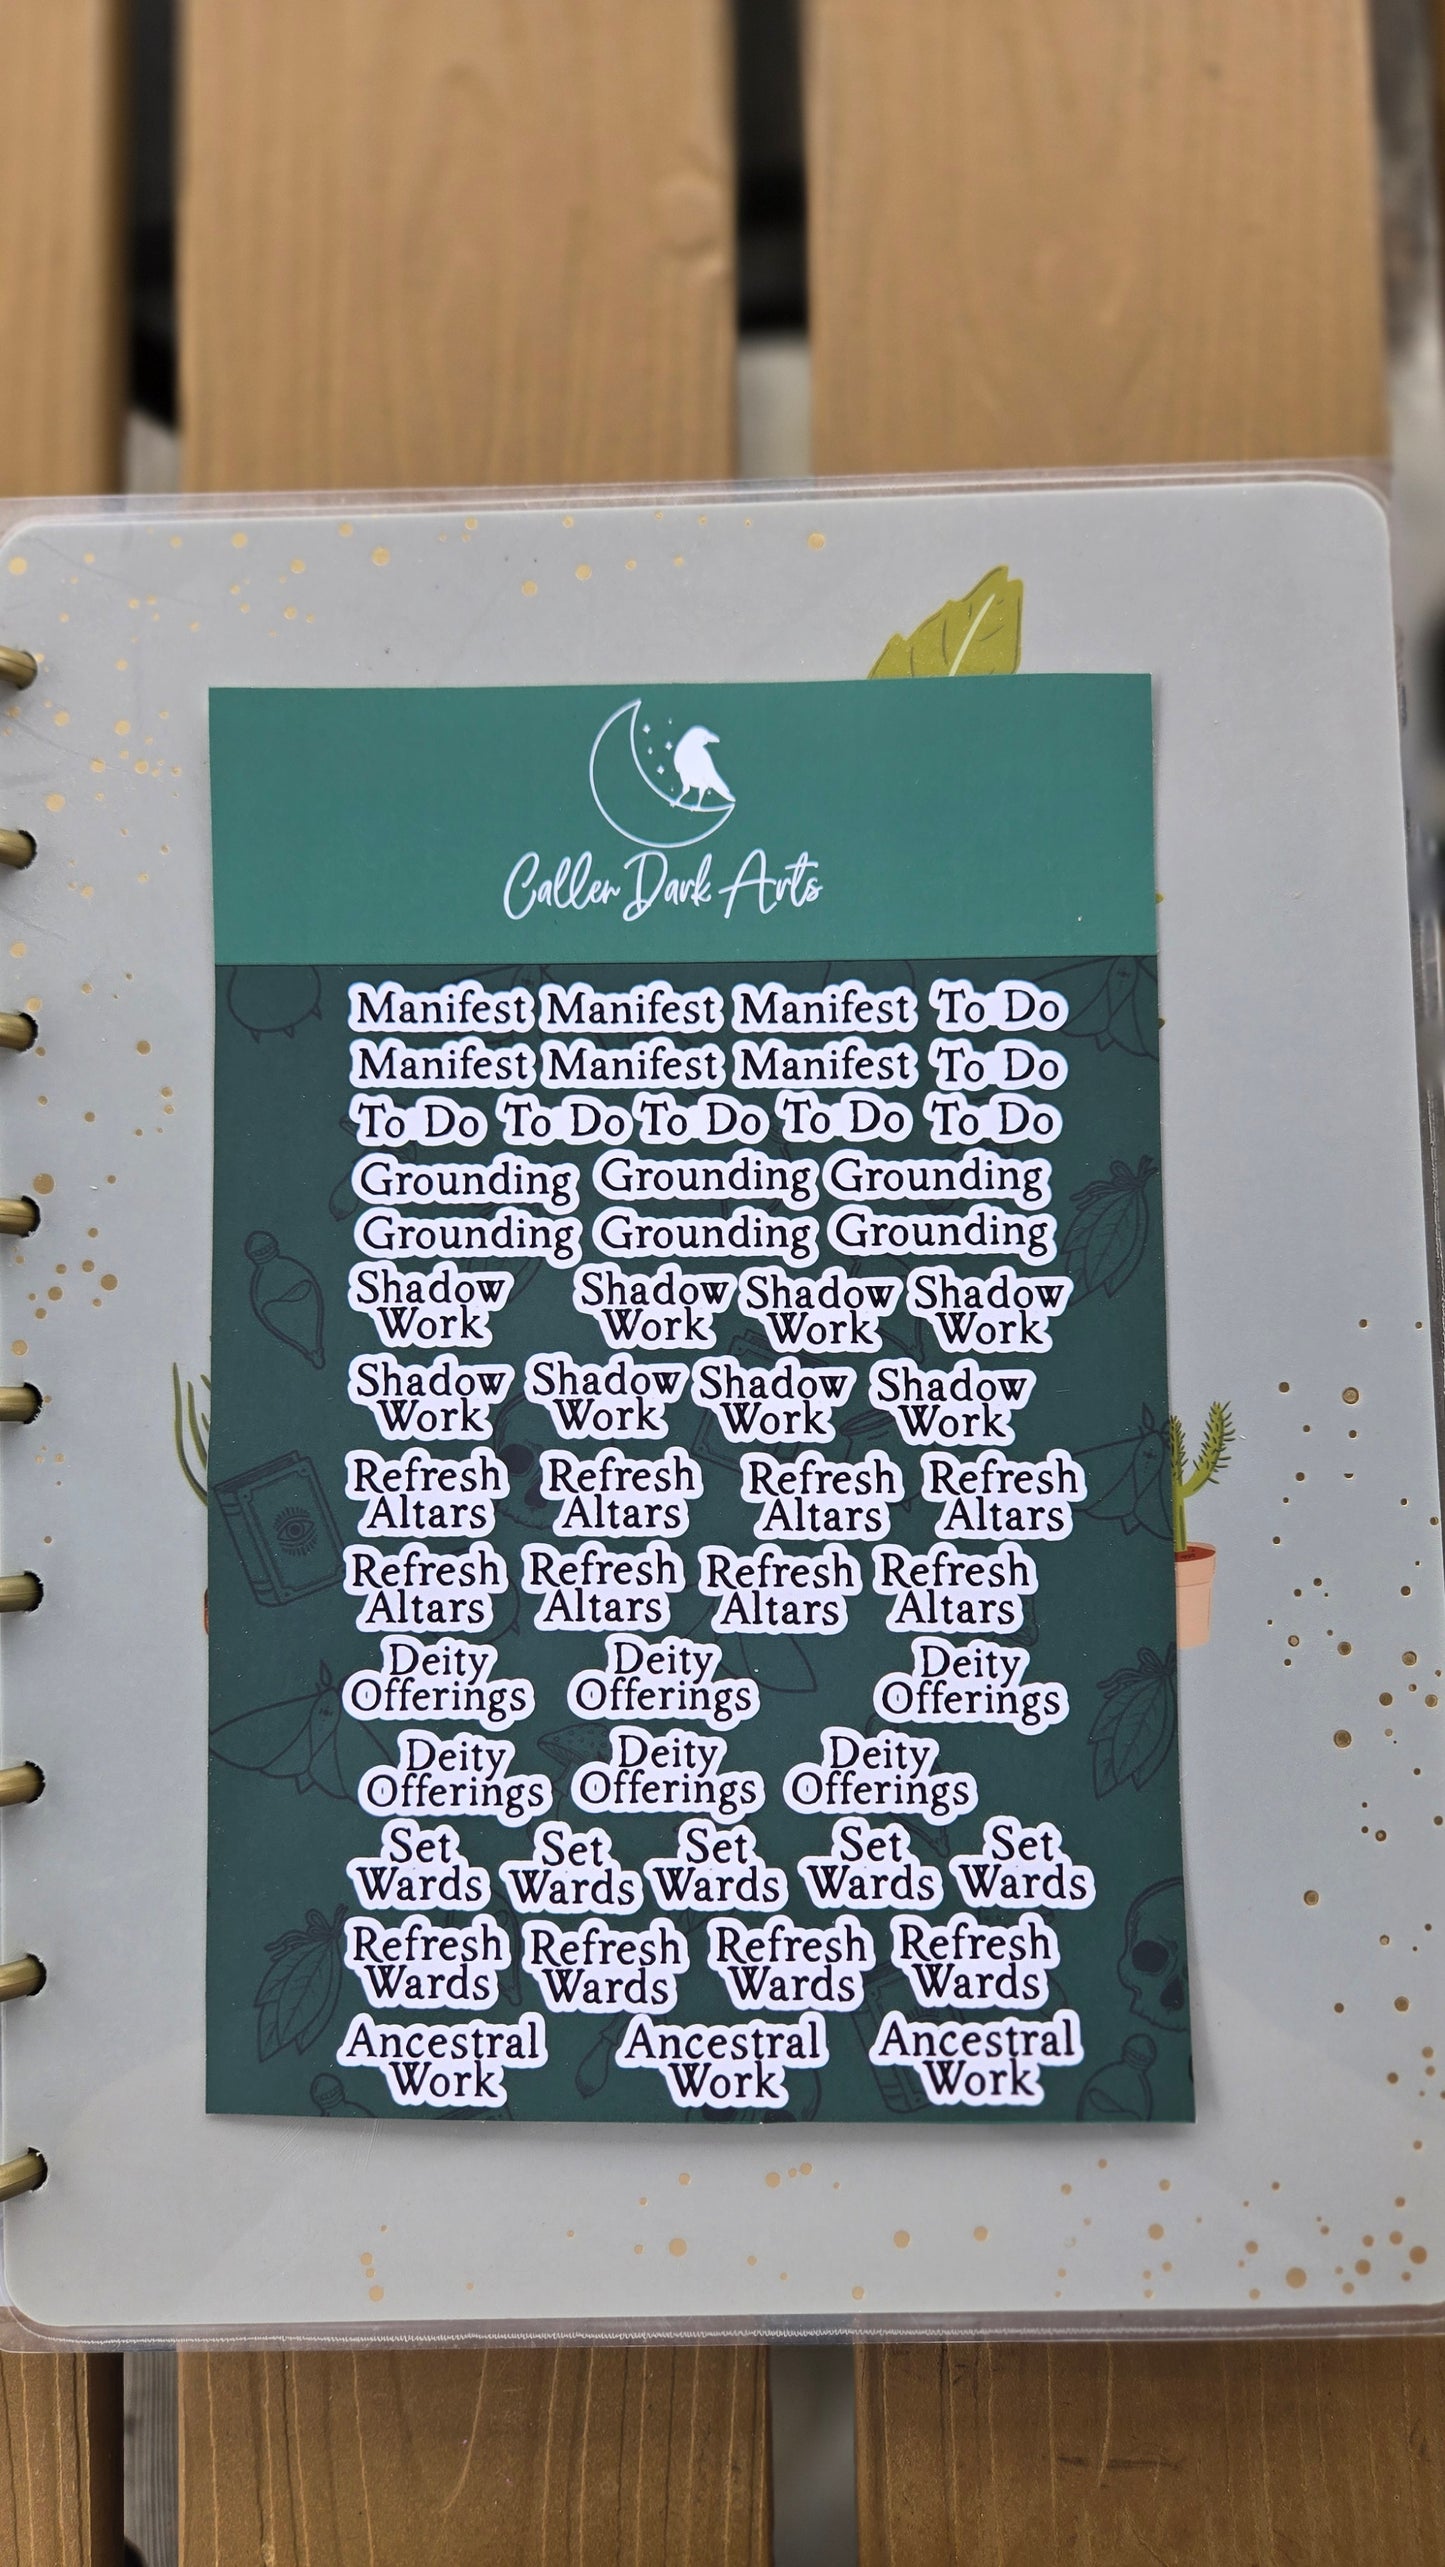 Caller Dark Arts
Manifest Manifest Manifest To Do
Manifest Manifest Manifest To Do
To Do To Do To Do To Do To Do
Grounding Grounding Grounding
Grounding Grounding Grounding
Shadow Shadow Shadow Shadow
Work Work Work Work
Shadow Shadow Shadow Shadow
Work Work Work Work
Refresh Refresh Refresh Refresh
Altars Altars Altars Altars
Refresh Refresh Refresh Refresh
Altars Altars Altars Altars
Deity Deity Deity
Offerings Offerings Offerings
Deity Deity Deity
Offerings Offerings Offerings
Set Set Set Set Set
Wards Wards Wards Wards Wards
Refresh Refresh Refresh Refresh
Wards Wards Wards Wards
Ancestral Ancestral Ancestral
Work Work Work